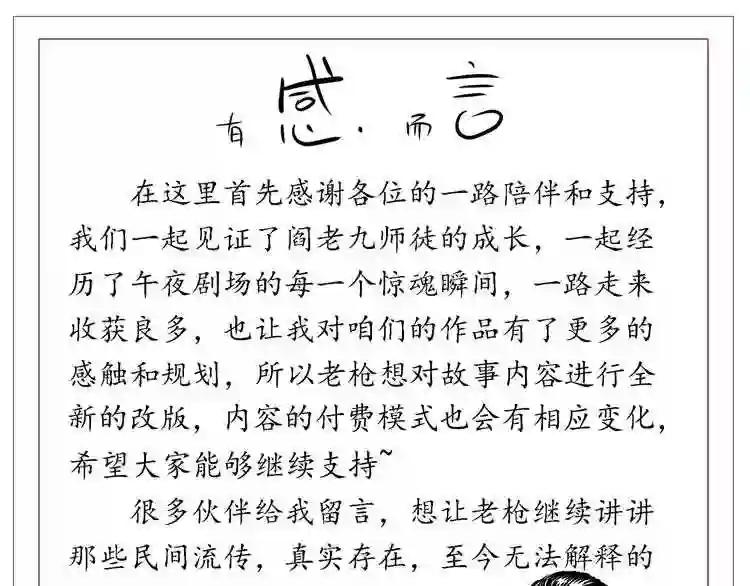 有感·而言
在这里首先感谢各位的一路陪伴和支持，
我们一起见证了阎老九师徒的成长，一起经
历了午夜剧场的每一个惊魂瞬间，一路走来
收获良多，也让我对咱们的作品有了更多的
感触和规划，所以老枪想对故事内容进行全
新的改版，内容的付费模式也会有相应变化，
希望大家能够继续支持~
很多伙伴给我留言，想让老枪继续讲讲
那些民间流传，真实存在，至今无法解释的